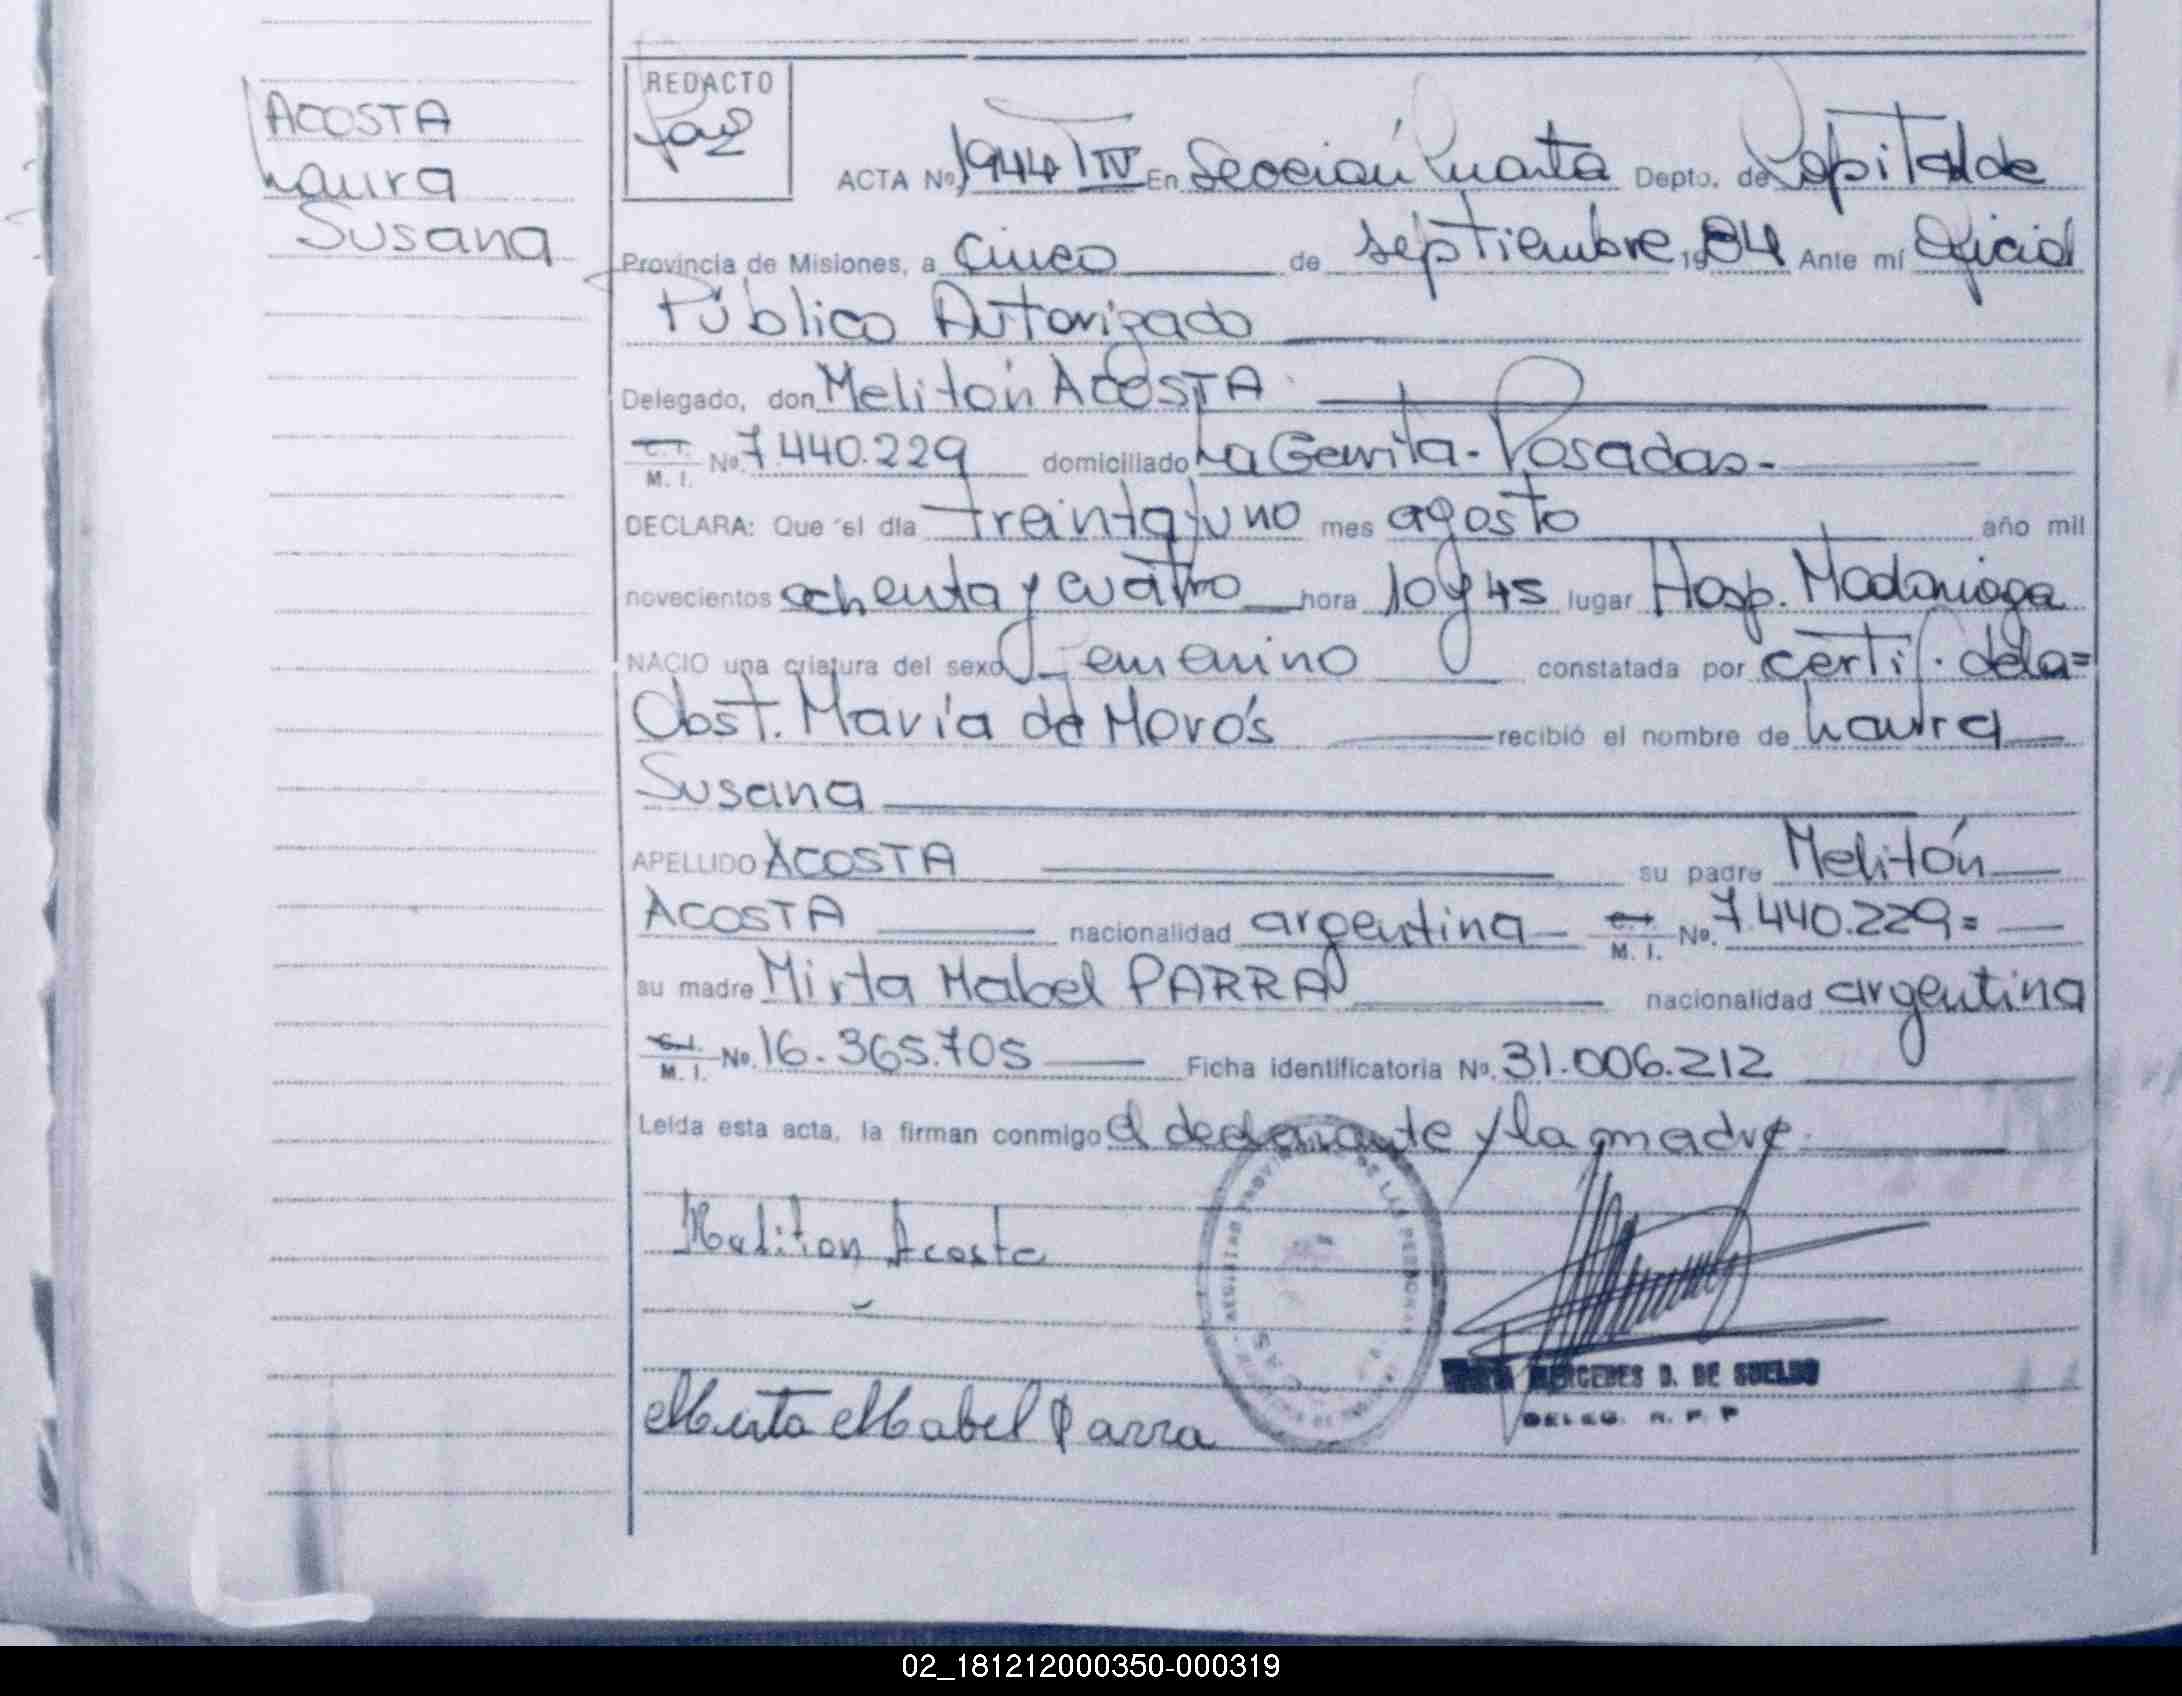 ACOSTA
Laura
Susana
REDACTO
ACTA Nº 1944 TIV En Sección Cuarta Depto. de Capital de
Provincia de Misiones, a Cinco de septiembre 1984 Ante mí Oficial
Público Autorizado
Delegado, don Melitón ACOSTA
C.I. M. I. Nº 7.440.229 domiciliado La Gewita - Posadas -
DECLARA: Que el día treinta y uno mes agosto año mil
novecientos ochenta y cuatro hora 10 y 45 lugar Hosp. Madariaga
NACIO una criatura del sexo femenino constatada por certif. de la =
Obst. María de Morós recibió el nombre de Laura
Susana
APELLIDO ACOSTA su padre Melitón
ACOSTA nacionalidad argentina C.I. M. I. Nº. 7.440.229 =
su madre Mirta Mabel PARRA nacionalidad argentina
C.I. M. I. Nº. 16.365.705 Ficha identificatoria Nº. 31.006.212
Leída esta acta, la firman conmigo el declarante y la madre.
Meliton Acosta
Mirta Mabel Parra
MERCEDES D. DE SUELDO
DELEG. R. P. P
02_181212000350-000319